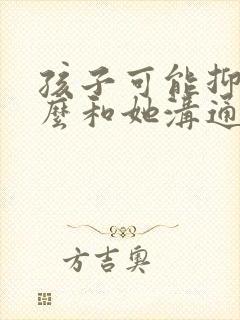 孩子可能抑
麼和她溝通
方吉奧